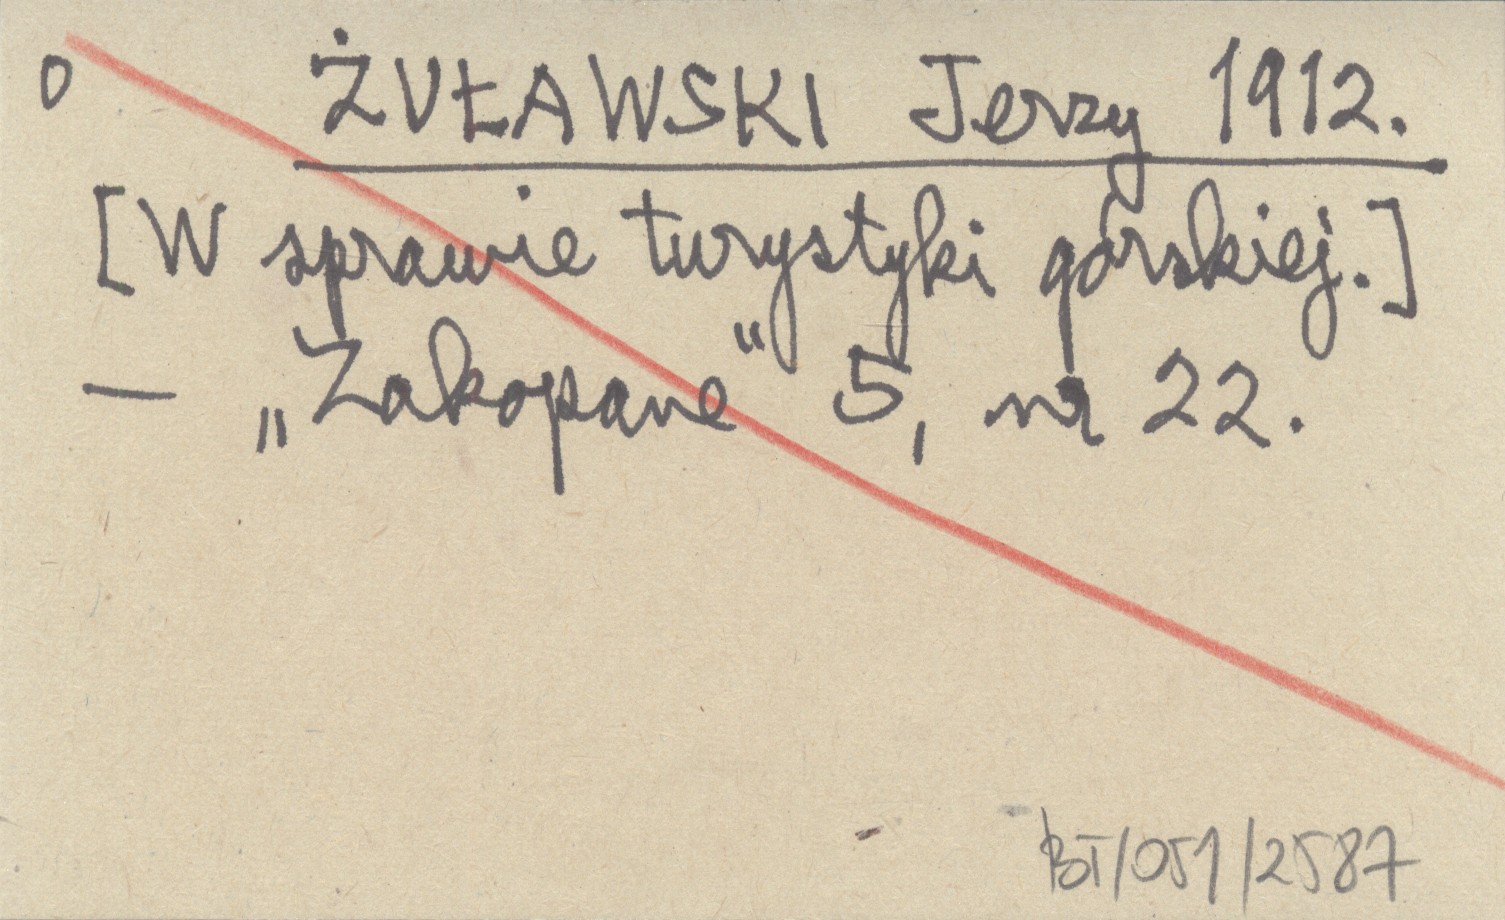 0 ŻUŁAWSKI Jerzy 1912.
[W sprawie turystyki górskiej.]
— „Zakopane" 5, nr 22.
BT/051/2587